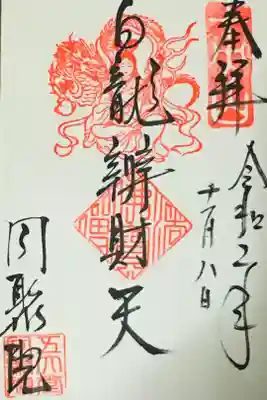 奉拝
令和二年
十一月八日
白龍辨財天
圓聚院